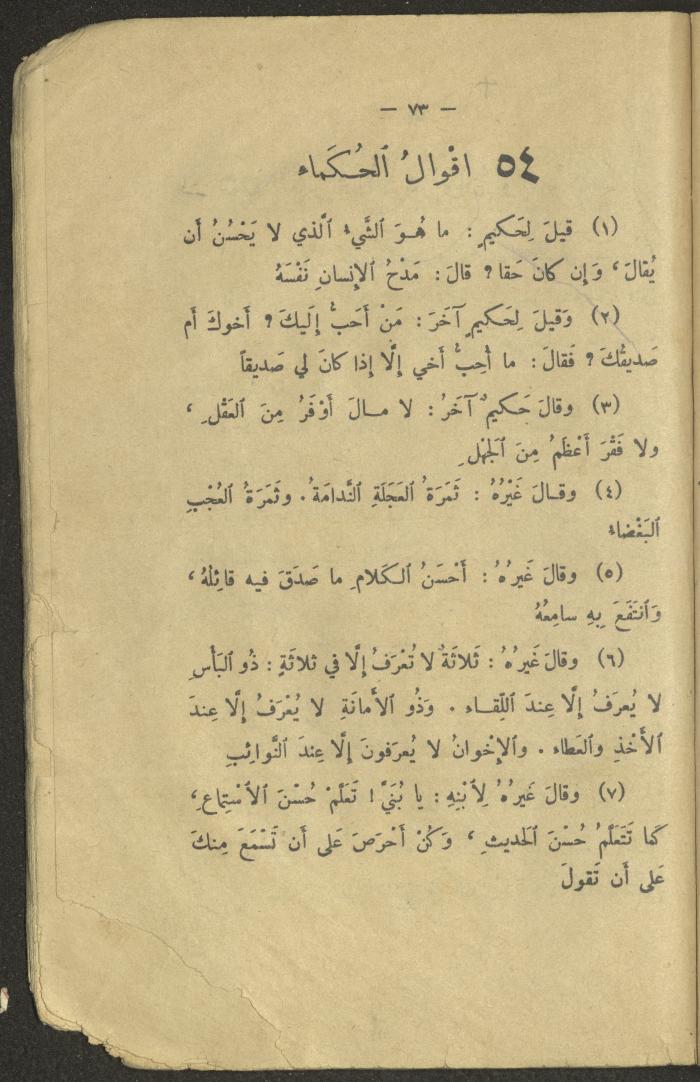 — ٧٣ —
٥٤ اقْوالُ ٱلحُكَماء
(١) قيلَ لِحَكيمٍ : ما هُوَ ٱلشَّيءُ ٱلَّذي لا يَحْسُنُ أَن
يُقالَ ، وَإِن كانَ حَقا ؟ قالَ : مَدْحُ ٱلإِنسانِ نَفْسَهُ
(٢) وَقيلَ لِحَكيمٍ آخَرَ : مَنْ أَحَبُّ إِلَيكَ ؟ أَخوكَ أَم
صَديقُكَ ؟ فَقالَ : ما أُحِبُّ أَخي إِلَّا إِذا كانَ لي صَديقاً
(٣) وقالَ حَكيمٌ آخَرُ : لا مالَ أَوْفَرُ مِنَ ٱلعَقْلِ ،
ولا فَقْرَ أَعْظَمُ مِنَ ٱلجَهْلِ
(٤) وقالَ غَيْرُهُ : ثَمَرَةُ ٱلعَجَلَةِ ٱلنَّدامَةُ . وثَمَرَةُ ٱلعُجْبِ
ٱلبَغْضاءُ
(٥) وقالَ غَيرُهُ : أَحْسَنُ ٱلكَلامِ ما صَدَقَ فيه قائِلُهُ ،
وَٱنتَفَعَ بِهِ سامِعُهُ
(٦) وقالَ غَيرُهُ : ثَلاثَةٌ لا تُعْرَفُ إِلَّا في ثلاثَةٍ : ذُو ٱلبَأْسِ
لا يُعرَفُ إِلَّا عِندَ ٱللِّقاء . وَذُو ٱلأَمانَةِ لا يُعْرَفُ إِلَّا عِندَ
ٱلأَخْذِ وٱلعَطاء . وٱلإِخْوانُ لا يُعرَفونَ إِلَّا عِندَ ٱلنَّوائِبِ
(٧) وقالَ غَيرُهُ لِٱبْنِهِ : يا بُنَيَّ ! تَعَلَّمْ حُسْنَ ٱلأَسْتِماعِ ،
كَما تَتَعَلَّمُ حُسْنَ ٱلحَديثِ ، وَكُنْ أَحْرَصَ عَلى أَن تَسْمَعَ مِنكَ
عَلى أَن تَقولَ